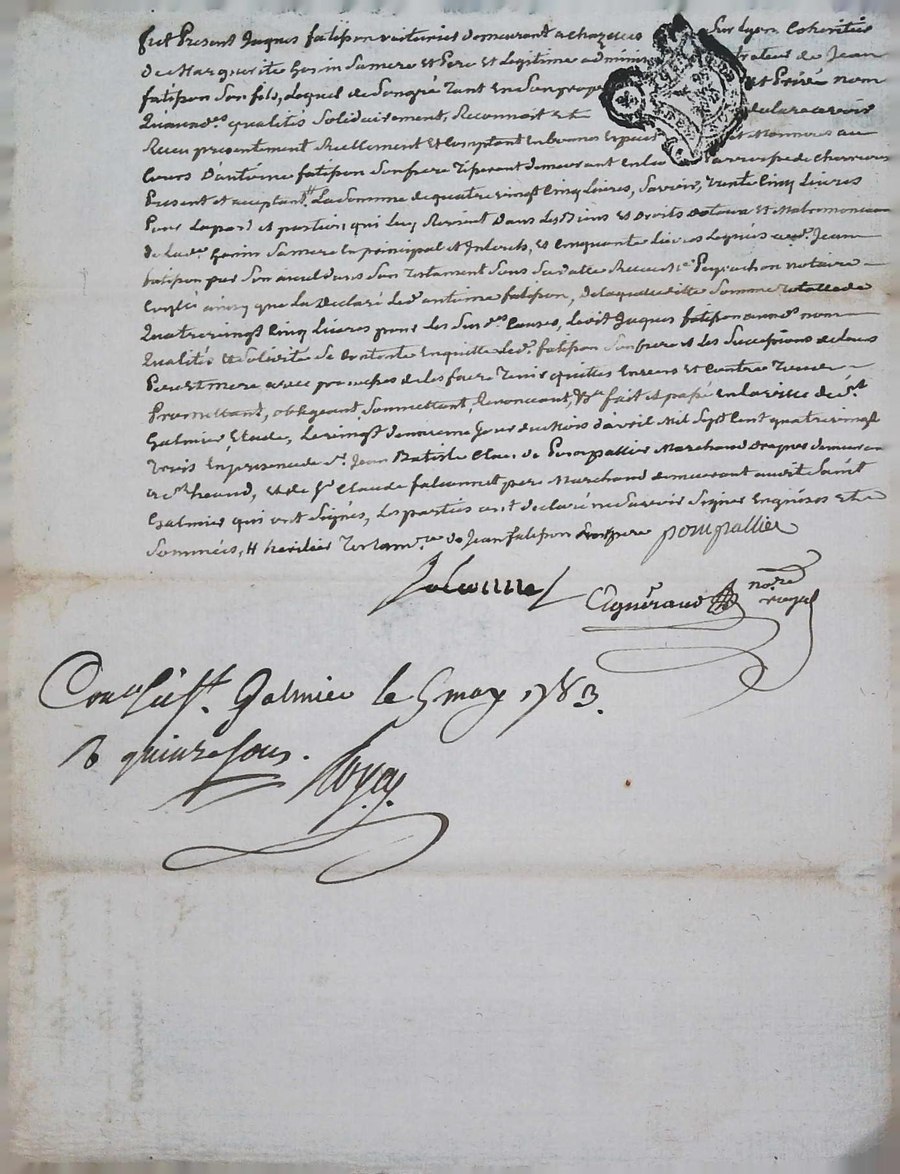 fut Present Jaques fatipon voiturier demeurant a chazelles Sur Lyon Coheritier
de Marguerite Gonin Sa mere et Pere et Legitime admini trateur de Jean
fatipon Son fils, Lequel de Son gré Tant en Son propre et Privé nom
Qu'aux d. qualités Solidairement, Reconnoit et declare avoir
Reçu presentement Reellement et Comptant en bonnes Espèces et Monnoies au
Cours D'antoine fatipon Son frere Tiperant demeurant en la parroisse de chevrieres
Present et acceptant. La Somme de quatre vingt Cinq Livres, Savoir, Trente Cinq Livres
Pour La part et portion qui luy Revient Dans Les Biens et Droits Dotaux et Matrimoniaux
de La de. Gonin Sa mere En principal et Interets, et Cinquante Livres Legués aud. Jean
fatipon par Son aieul dans Son Testament Sous Sa datte Recu Me Peyrachon notaire
ainsy que L'a Declaré led. antoine fatipon, De laquelle ditte Somme totalle de
Quatre vingt Cinq Livres pour Les Sus d. Causes, Ledit Jaques fatipon aux d. nom
Qualités et Solidité Se Contente En quitte Led. fatipon Son frere et Les Successions de Leurs
Pere et Mere avec promesses de Les faire Tenir quittes Envers et Contre Tous
Promettant, obligeant, Soumettant, Renonçant, &a fait et passé En la ville de St.
Galmier Etude, Le vingt deuxieme Jour du Mois d'avril Mil Sept Cent quatre vingt
Trois En presence de Sr. Jean Batiste Clau de Pompallier Marchand Drapier demeurant
et de Sr. Claude faleonnet pere Marchand demeurant audit Saint
Galmier qui ont Signés, Les parties ont declaré ne Savoir Signer Enquises et
Sommées, # heritier Testam.re de Jean fatipon Son pere pompallier
faleonnet Cignéraud nore. royal
Conllé à St. Galmier le 5 may 1783.
R quinze Sous.